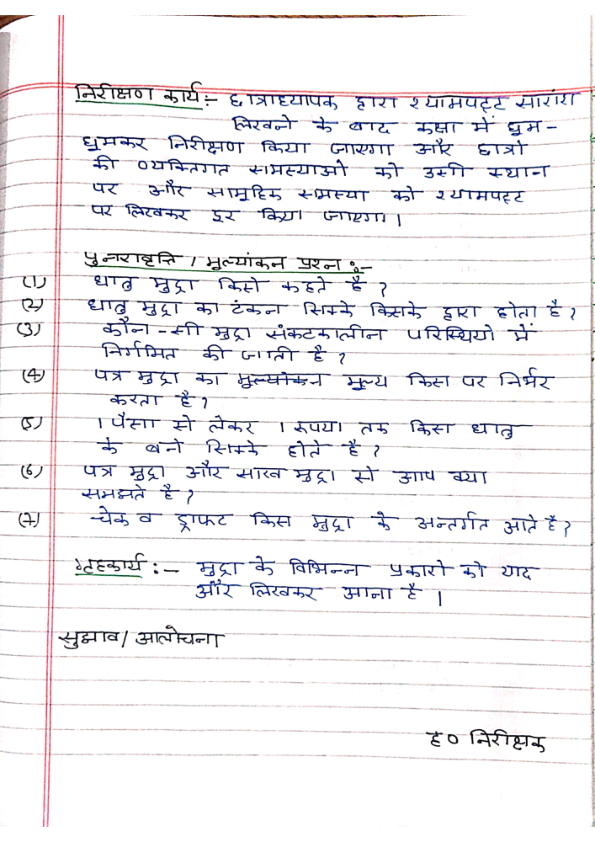 निरीक्षण कार्य :- छात्राध्यापक द्वारा श्यामपट्ट सारांश
लिखने के बाद कक्षा में घुम-
घुमकर निरीक्षण किया जाएगा और छात्रो
की व्यक्तिगत समस्याओ को उसी स्थान
पर और सामुहिक समस्या को श्यामपट्ट
पर लिखकर दुर किया जाएगा।
पुनरावृत्ति / मुल्यांकन प्रश्न :-
(1) धातु मुद्रा किसे कहते है ?
(2) धातु मुद्रा का टंकन सिक्के किसके द्वारा होता है ?
(3) कौन-सी मुद्रा संकटकालीन परिस्थियो में
निर्गमित की जाती है ?
(4) पत्र मुद्रा का मुल्यांकन मूल्य किस पर निर्भर
करता है ?
(5) 1 पैसा से लेकर 1 रूपया तक किस धातु
के बने सिक्के होते है ?
(6) पत्र मुद्रा और साख मुद्रा से आप क्या
समझते है ?
(7) चेक व ड्राफट किस मुद्रा के अन्तर्गत आते है ?
गृहकार्य :- मुद्रा के विभिन्न प्रकारो को याद
और लिखकर आना है |
सुझाव / आलोचना
ह० निरीक्षक